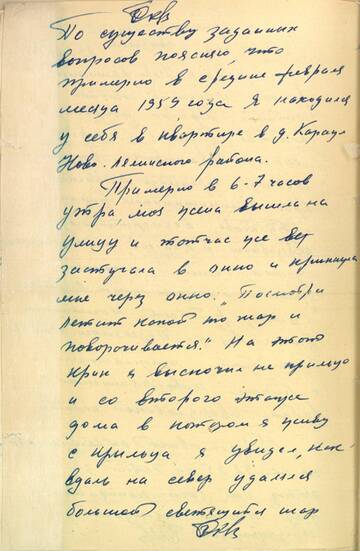 По существу заданных
вопросов поясняю что
примерно в средине февраля
месяца 1959 года я находился
у себя в квартире в д. Караул
Ново-Лялинского района.
Примерно в 6-7 часов
утра, моя жена вышла на
улицу и тотчас же
застучала в окно и крикнула
мне через окно. "Посмотри
летит какой то шар и
поворачивается." На этот
крик я выскочил на крыльцо
и со второго этажа
дома в котором я живу
с крыльца я увидел, как
вдаль на север удалялся
большой светящийся шар